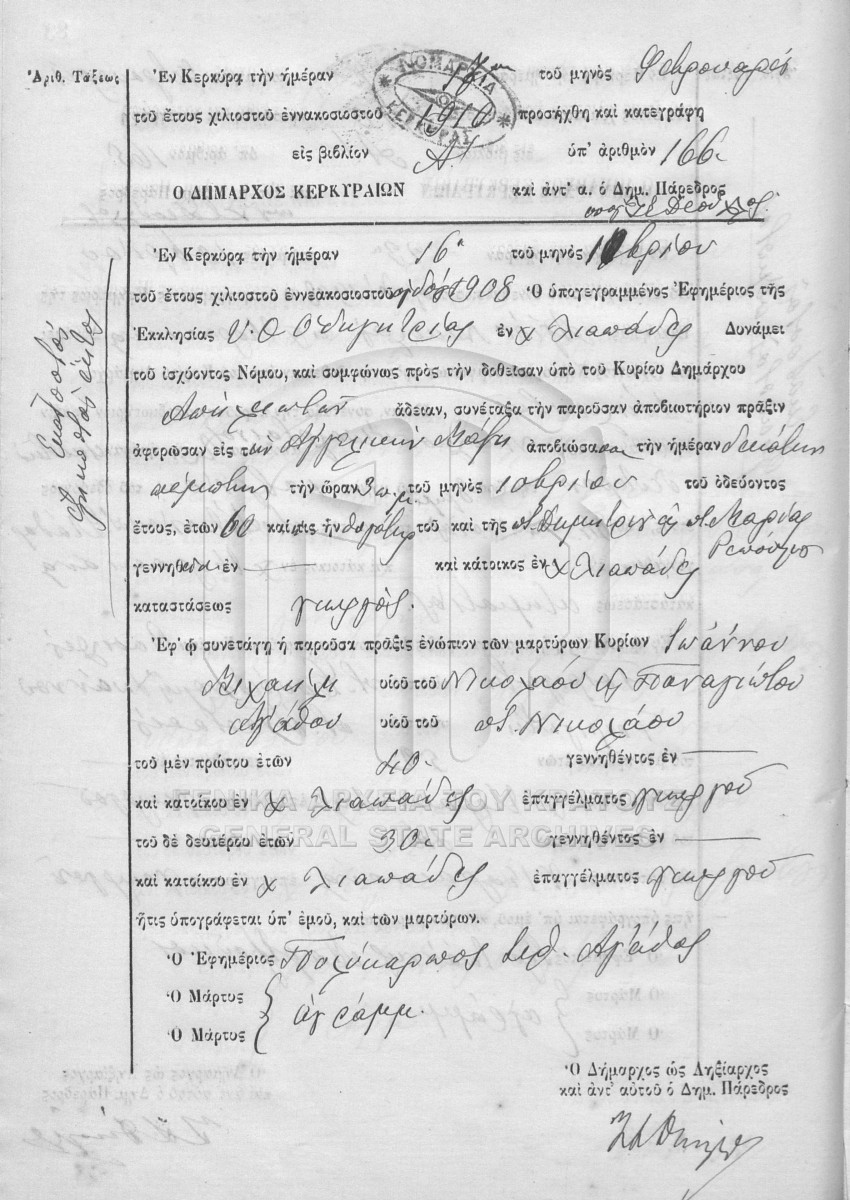 Ἀριθ. Τάξεως
Ἐν Κερκύρᾳ τὴν ἡμέραν τοῦ μηνὸς Φεβρουαρίου
ΝΟΜΑΡΧΙΑ ΚΕΡΚΥΡΑΣ
τοῦ ἔτους χιλιοστοῦ ἐννακοσιοστοῦ 1910 προσήχθη καὶ κατεγράφη
εἰς βιβλίον Α1 ὑπ' ἀριθμὸν 166
Ο ΔΗΜΑΡΧΟΣ ΚΕΡΚΥΡΑΙΩΝ καὶ ἀντ' α. ὁ Δημ. Πάρεδρος
Ἐν Κερκύρᾳ τὴν ἡμέραν 16 τοῦ μηνὸς 10βρίου
τοῦ ἔτους χιλιοστοῦ ἐννεακοσιοστοῦ 1908 Ὁ ὑπογεγραμμένος Ἐφημέριος τῆς
Ἐκκλησίας Υ. Θ. Ὁδηγητρίας ἐν χ Λιαπάδες Δυνάμει
τοῦ ἰσχύοντος Νόμου, καὶ συμφώνως πρὸς τὴν δοθεῖσαν ὑπὸ τοῦ Κυρίου Δημάρχου
ἄδειαν, συνέταξα τὴν παροῦσαν ἀποβιωτήριον πρᾶξιν
ἀφορῶσαν εἰς τὴν Ἀγγελικὴν ἀποβιώσασαν τὴν ἡμέραν δεκάτην
πέμπτην τὴν ὥραν 3 π.μ. τοῦ μηνὸς 10βρίου τοῦ ὁδεύοντος
ἔτους, ἐτῶν 60 καὶ εἰς ἣν θυγάτηρ τοῦ καὶ τῆς π. Δημητρίου κ π. Μαρίας
γεννηθεῖσα ἐν — καὶ κάτοικος ἐν χ Λιαπάδες
καταστάσεως γεωργός.
Ἑκατοστὸς
ἑξηκοστὸς ἕκτος
Ἐφ' ᾧ συνετάγη ἡ παροῦσα πρᾶξις ἐνώπιον τῶν μαρτύρων Κυρίων Ἰωάννου
υἱοῦ τοῦ Νικολάου κ Παναγιώτου
Ἀγάθου υἱοῦ τοῦ π. Νικολάου
τοῦ μὲν πρώτου ἐτῶν 40 γεννηθέντος ἐν —
καὶ κατοίκου ἐν χ Λιαπάδες ἐπαγγέλματος γεωργοῦ
ΓΕΝΙΚΑ ΑΡΧΕΙΑ ΤΟΥ ΚΡΑΤΟΥΣ
GENERAL STATE ARCHIVES
τοῦ δὲ δευτέρου ἐτῶν 30 γεννηθέντος ἐν —
καὶ κατοίκου ἐν χ Λιαπάδες ἐπαγγέλματος γεωργοῦ
ἥτις ὑπογράφεται ὑπ' ἐμοῦ, καὶ τῶν μαρτύρων.
Ὁ Ἐφημέριος Πολύκαρπος Ἀγάθος
Ὁ Μάρτυς
ἀγράμμ.
Ὁ Μάρτυς
Ὁ Δήμαρχος ὡς Ληξίαρχος
καὶ ἀντ' αὐτοῦ ὁ Δημ. Πάρεδρος